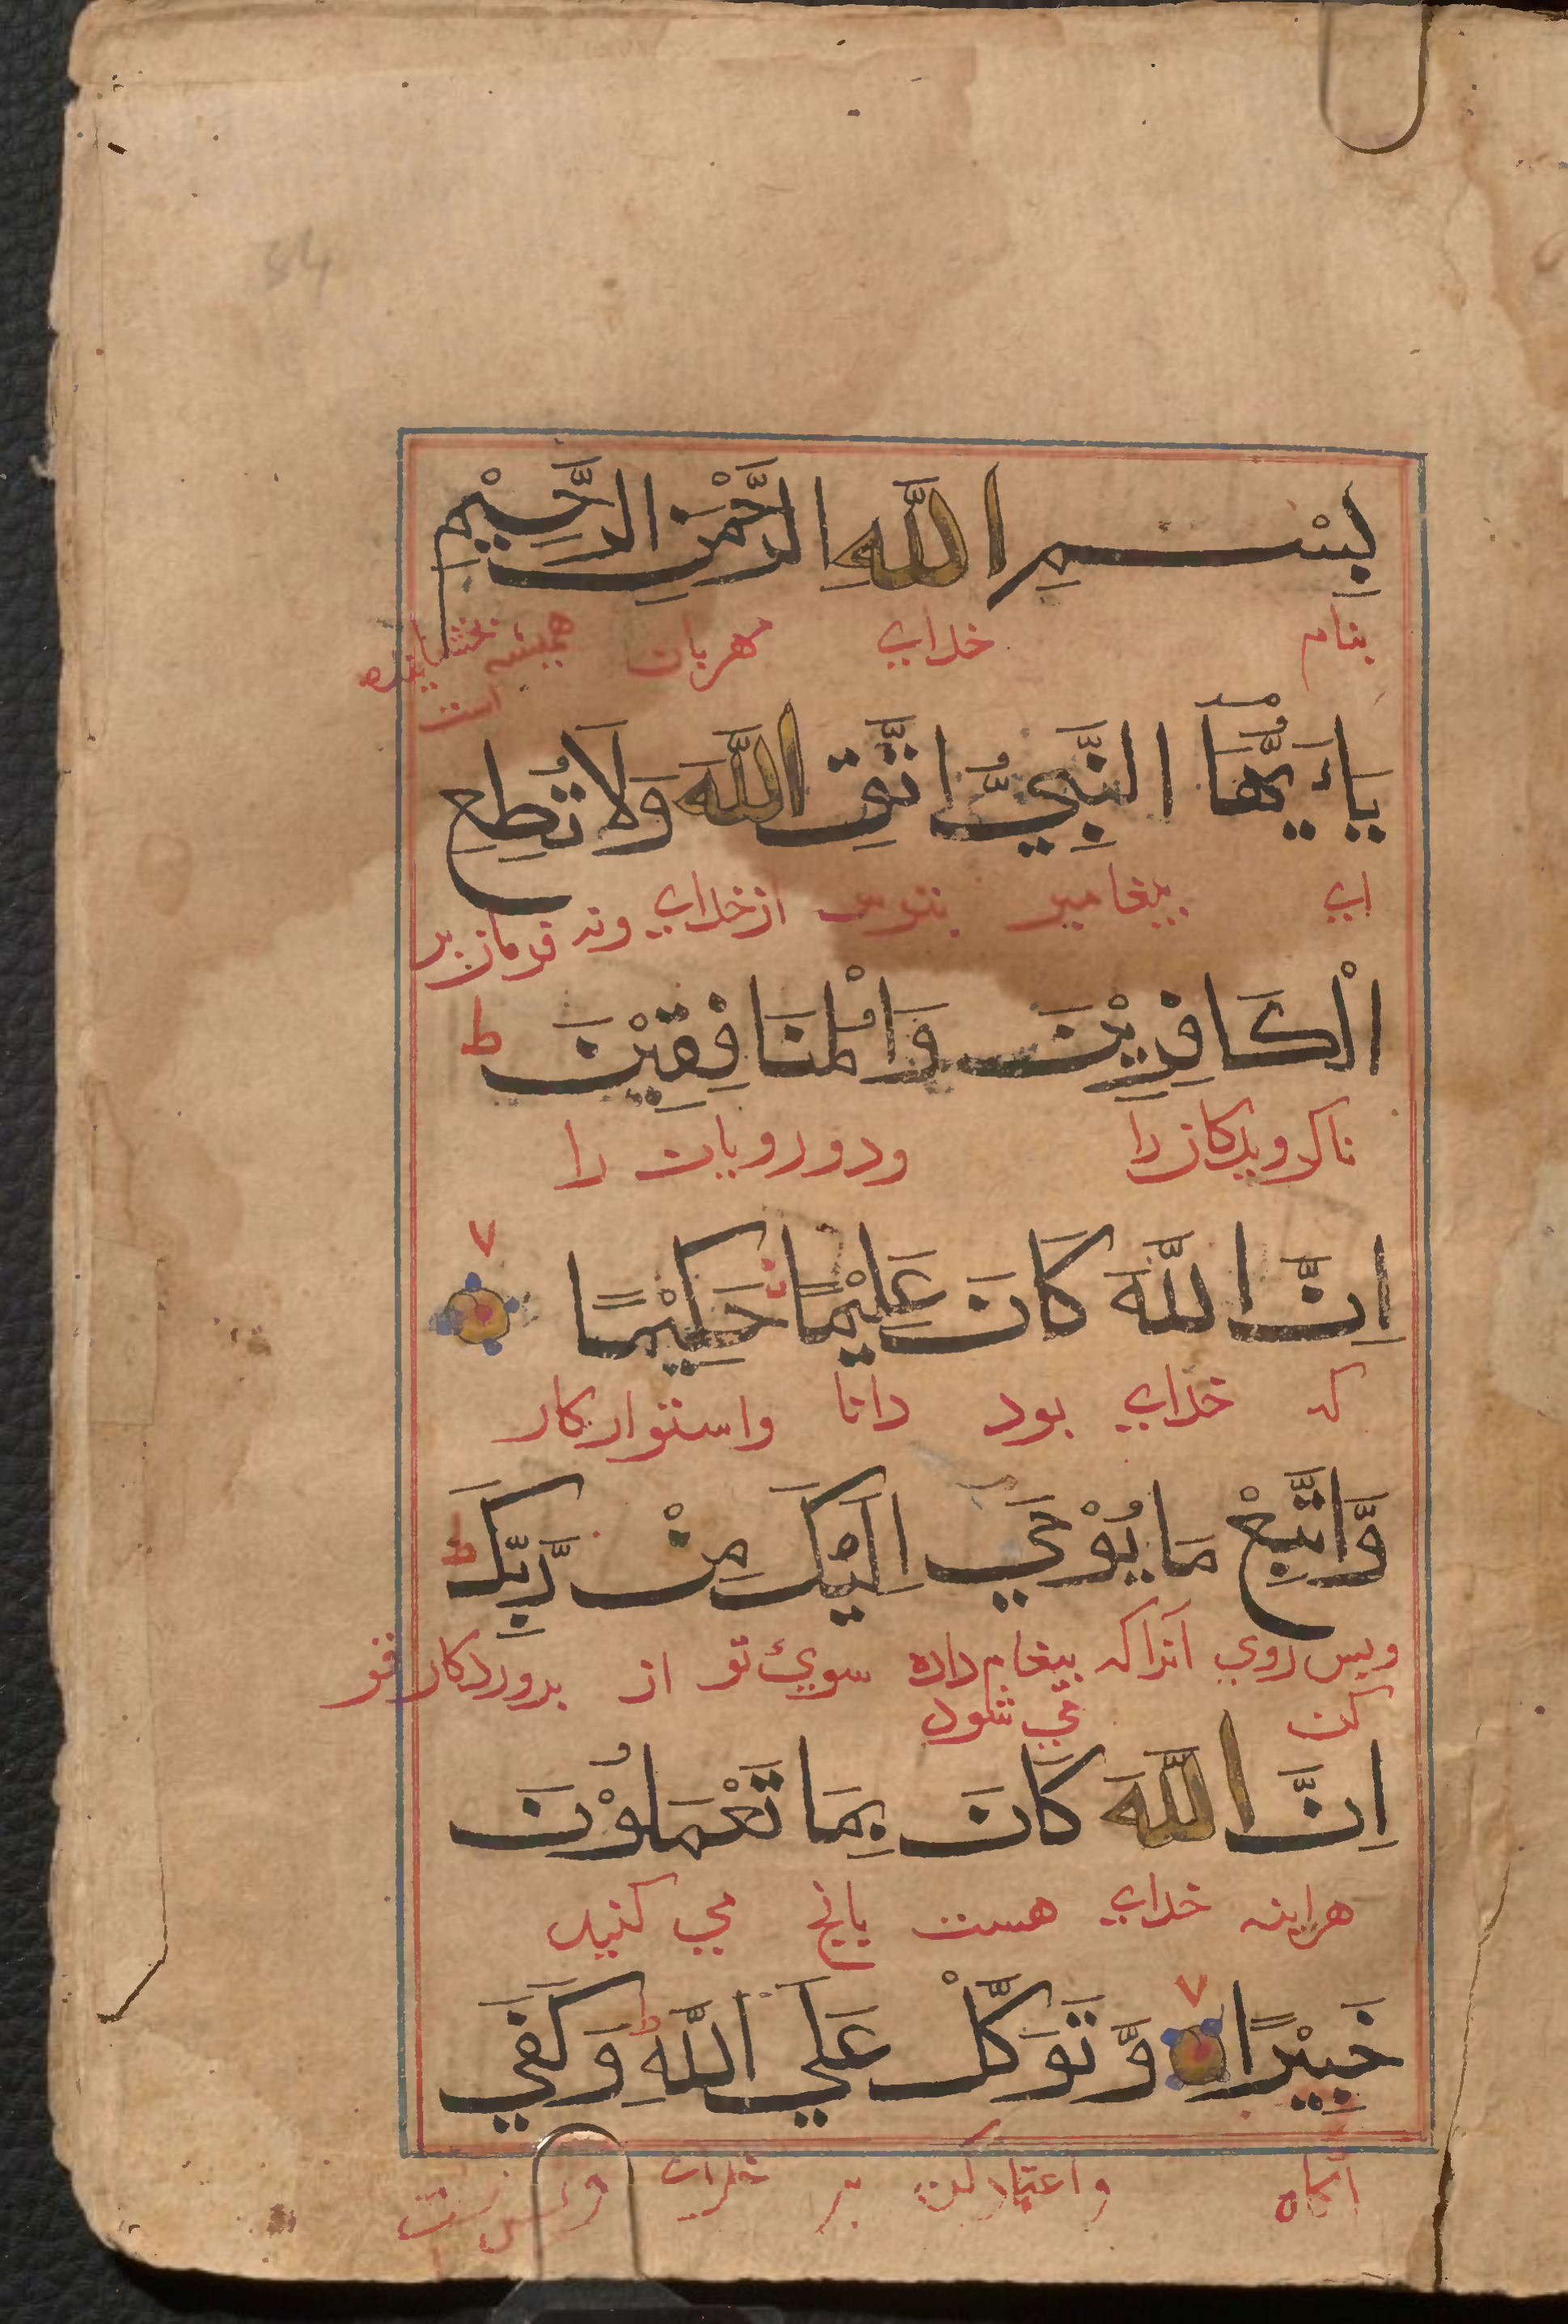 بِسْمِ اللَّهِ الرَّحْمٰنِ الرَّحِيْمِ
بنام خداي مهربان هميشه بخشاينده
است
يٰاَيُّهَا النَّبِيُّ اتَّقِ اللَّهَ وَلَا تُطِعِ
اي پيغامبر بترس از خداي ونه فرمان بر
الْكَافِرِيْنَ وَالْمُنَافِقِيْنَ ط
ناكرويدكان را ودورويان را
اِنَّ اللَّهَ كَانَ عَلِيْمًا حَكِيْمًا
كه خداي بود دانا واستواركار
وَّاتَّبِعْ مَا يُوْحَي اِلَيْكَ مِنْ رَّبِّكَ ط
وپس روي آنراكه پيغام داده سوئ تو از پروردكار تو
كن مي شود
اِنَّ اللَّهَ كَانَ بِمَا تَعْمَلُوْنَ
هراينه خداي هست بانچ مي كنيد
خَبِيْرًا وَّتَوَكَّلْ عَلَي اللَّهِ ط وَكَفَي
آكاه واعتمادكن بر خداي